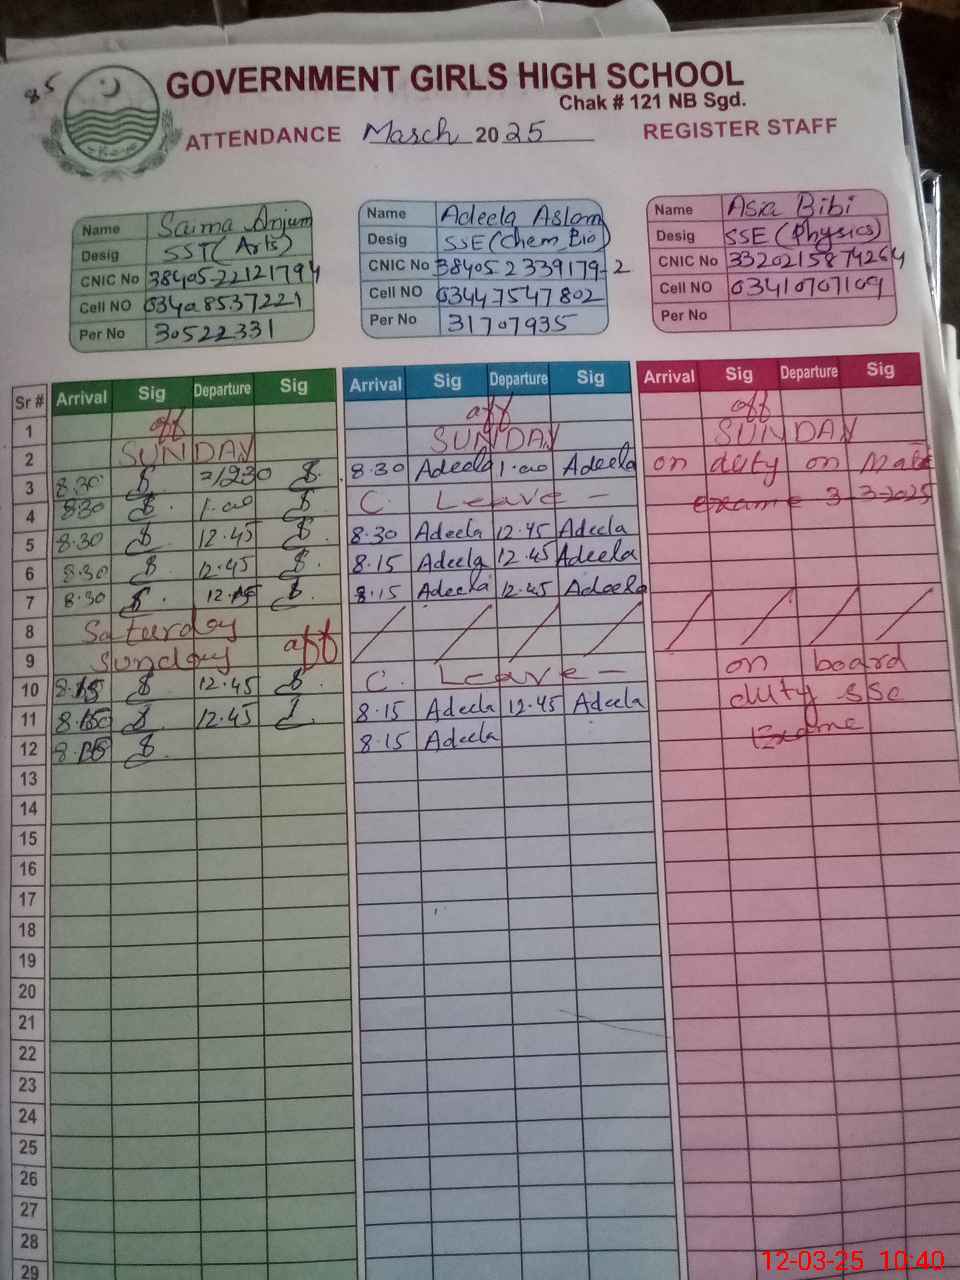 85
GOVERNMENT GIRLS HIGH SCHOOL
Chak # 121 NB Sgd.
ATTENDANCE March 2025 REGISTER STAFF
Name Saima Anjum
Desig SST (Arts)
CNIC No 38405-22121794
Cell NO 03408537221
Per No 30522331
Name Adeela Aslam
Desig SSE (Chem, Bio)
CNIC No 38405 2339179-2
Cell NO 03447547802
Per No 31707935
Name Asia Bibi
Desig SSE (Physics)
CNIC No 3320215874264
Cell NO 03410707109
Per No
Sr # Arrival Sig Departure Sig Arrival Sig Departure Sig Arrival Sig Departure Sig
1 off off off
2 SUNDAY SUNDAY SUNDAY
3 8.30 1230 8.30 Adeela 1.00 Adeela on duty on
4 830 1.00 C. Leave - exame 3-3-2025
5 8.30 12.45 8.30 Adeela 12.45 Adeela
6 8.30 12.45 8.15 Adeela 12.45 Adeela
7 8.30 12.45 8.15 Adeela 12.45 Adeela
8 Saturday
9 Sunday off on board
10 8.15 12.45 C. Leave - duty SSC
11 8.15 12.45 8.15 Adeela 12.45 Adeela Exame
12 8.15 8.15 Adeela
13
14
15
16
17
18
19
20
21
22
23
24
25
26
27
28
29
12-03-25 10:40